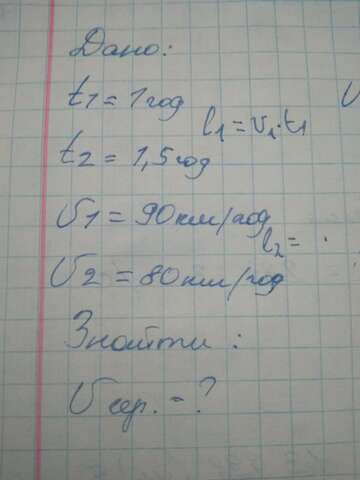 Дано:
t1 = 1 год
l1 = v1·t1
t2 = 1,5 год
v1 = 90 км/год
l2 =
v2 = 80 км/год
Знайти:
v сер. - ?